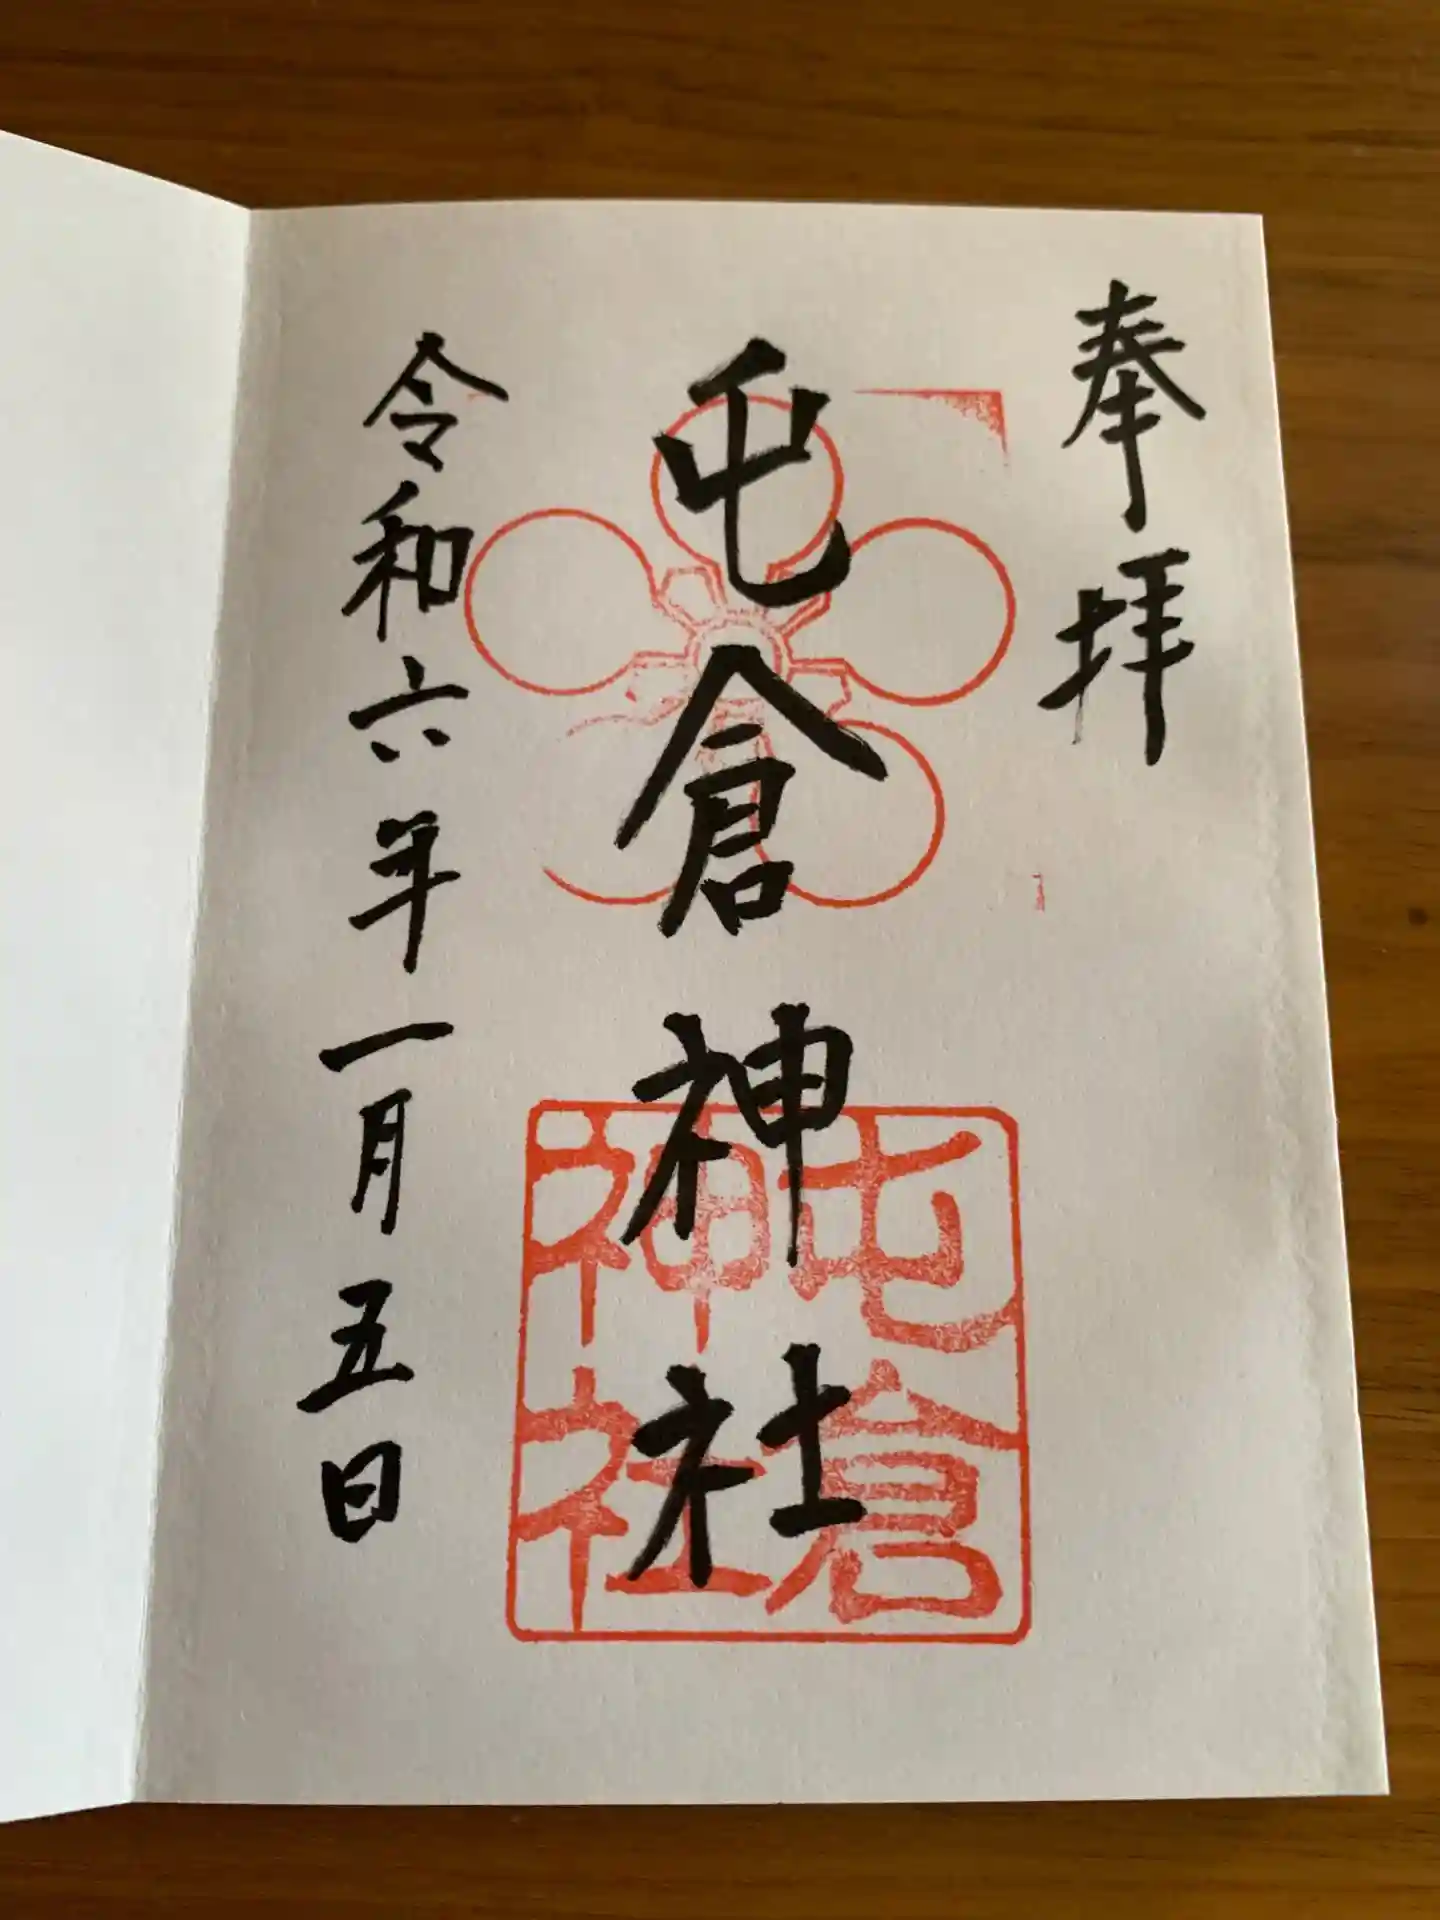 奉拝
屯倉神社
屯倉神社
令和六年一月五日